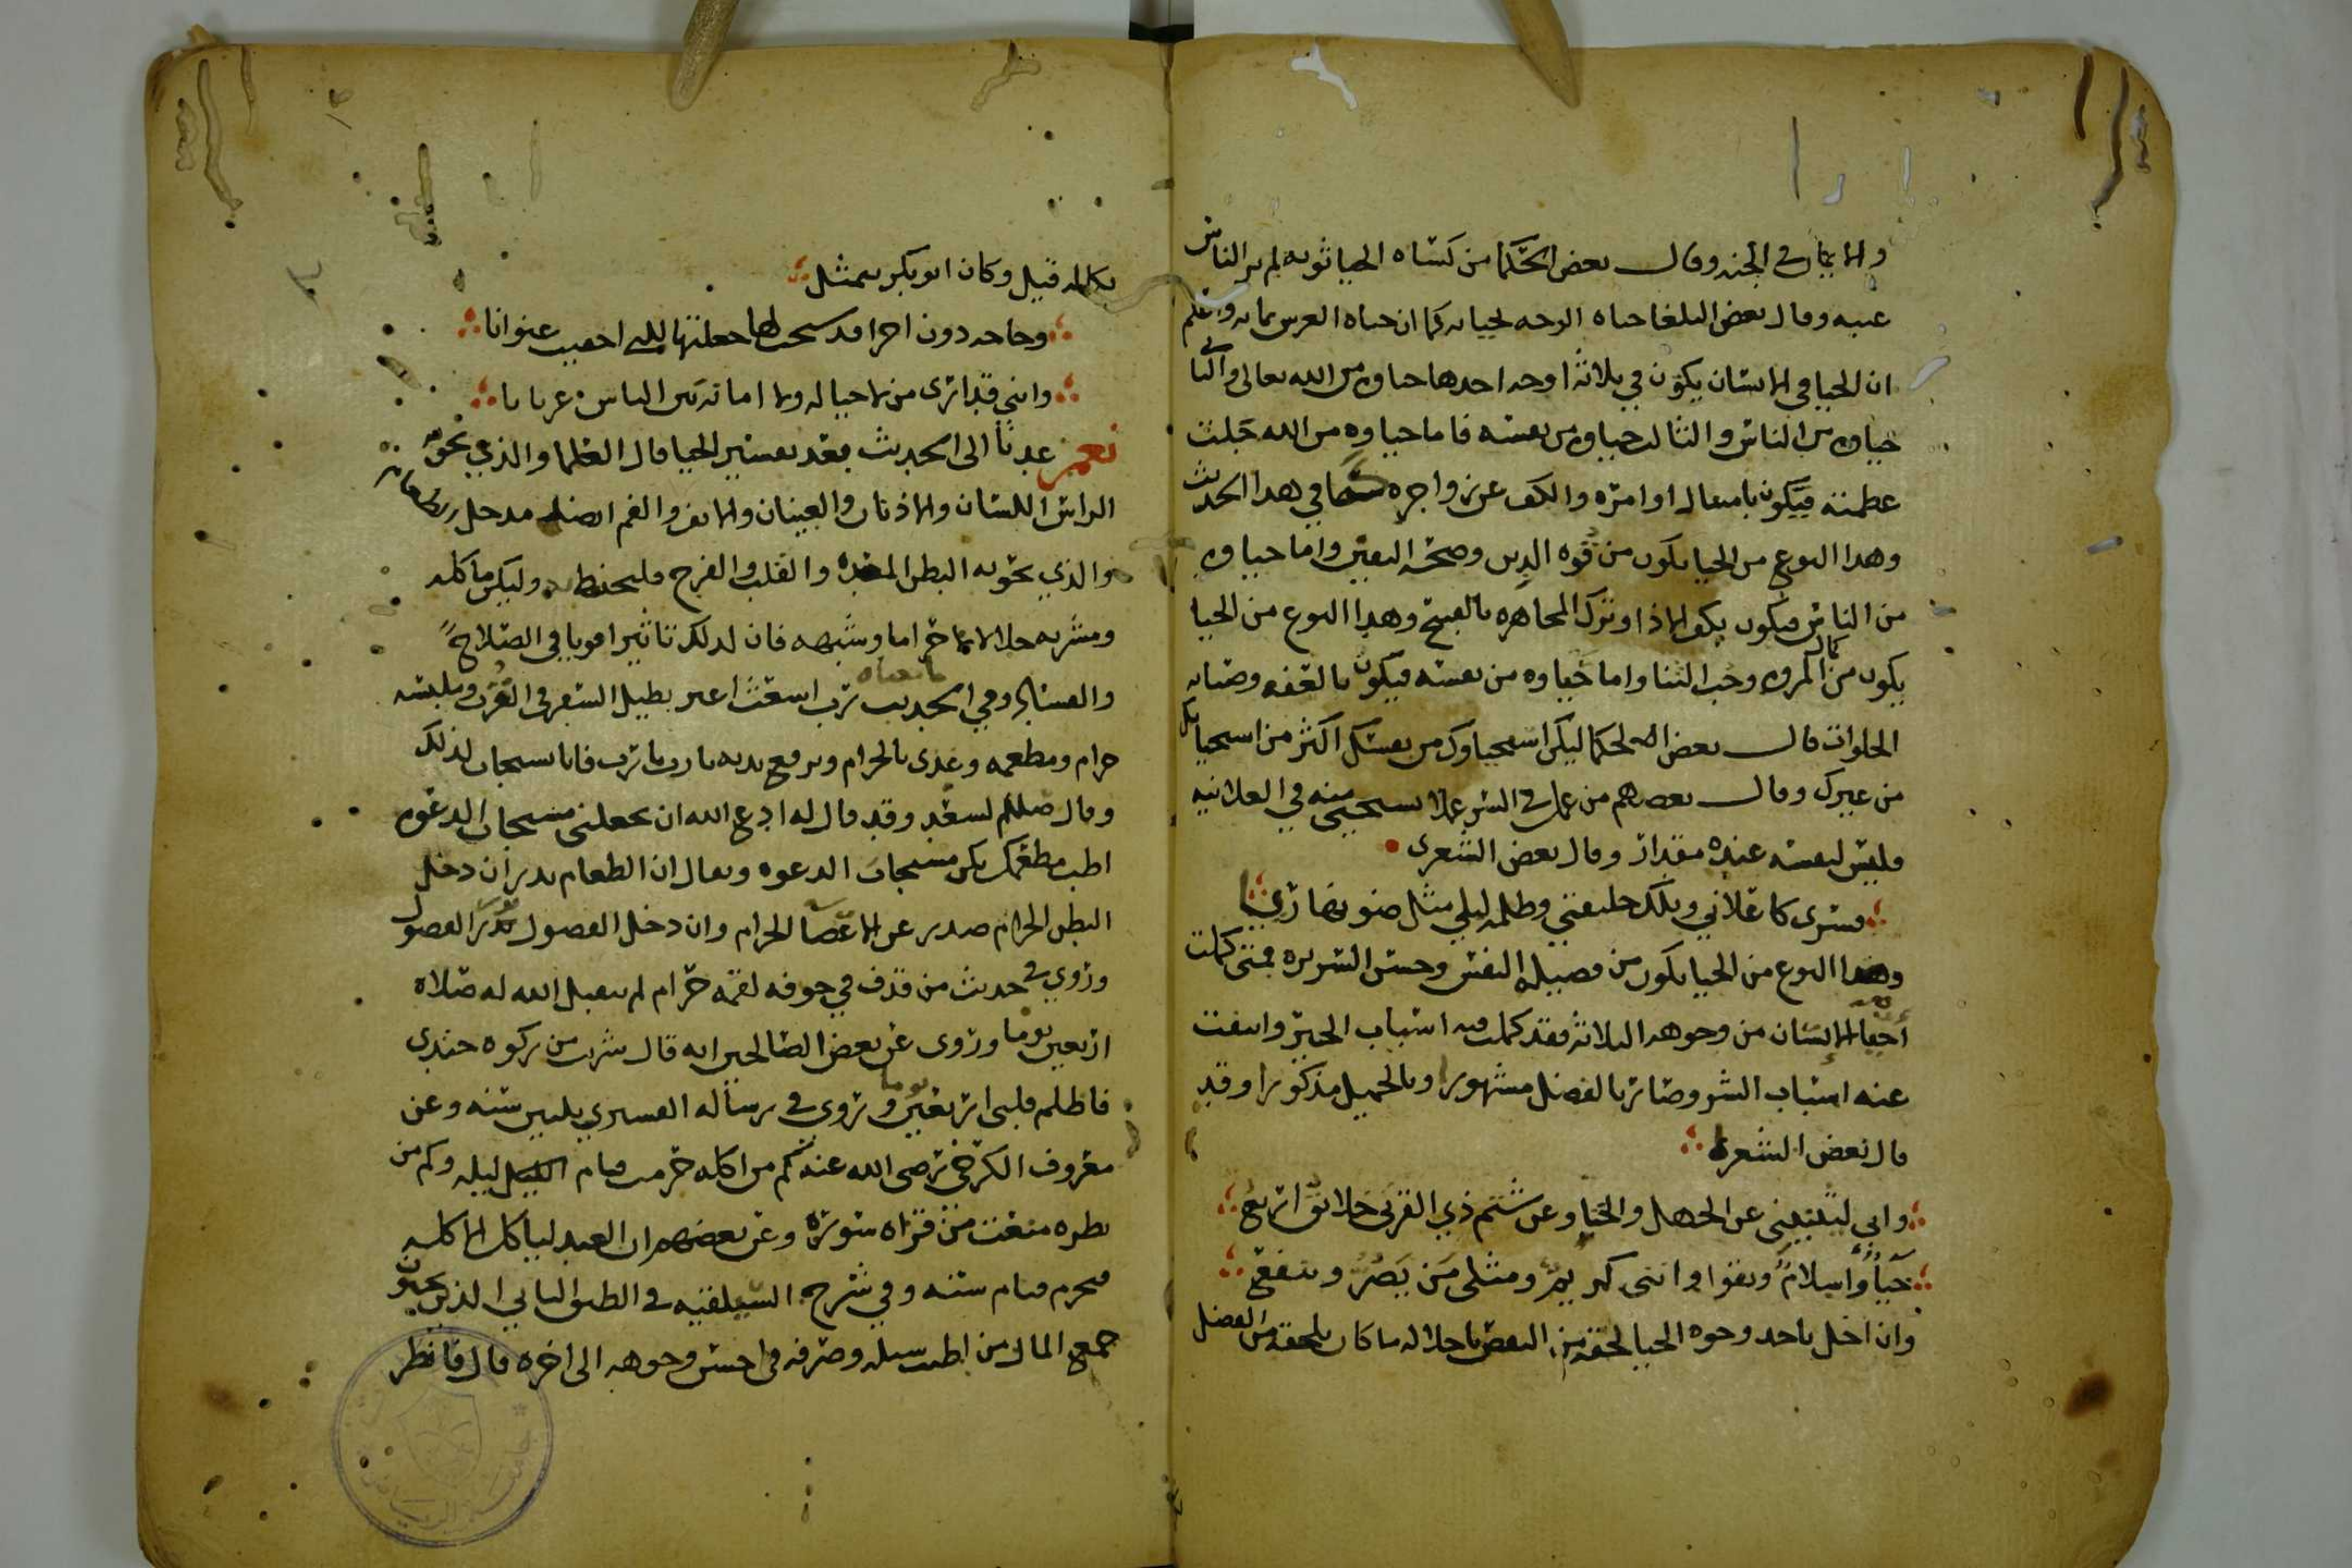 والايمان في الجنه وقال بعض الحكما من كساه الحيا ثوبه لم ير الناس
عيبه وقال بعض البلغا حياه الوجه لحيايه كما ان حياه الغرس بمايه واعلم
ان الحيا في الانسان يكون في ثلاثه اوجه احدها حياوه من الله تعالى والثاني
حياوه من الناس والثالث حياوه من نفسه فاما حياوه من الله جلت
عظمته فيكون بامتثال اوامره والكف عن زواجره كما في هذا الحديث
وهذا النوع من الحيا يكون من قوه الدين وصحه اليقين واما حياوه
من الناس فيكون بكف الاذا وترك المجاهره بالقبيح وهذا النوع من الحيا
يكون من كمال المروه وحب الثنا واما حياوه من نفسه فيكون بالعفه وصيانه
الخلوات قال بعض الحكما ليكن استحياوك من نفسك اكثر من استحيايك
من غيرك وقال بعضهم من عمل في السر عملا يستحيى منه في العلانيه
فليس لنفسه عنده مقدار وقال بعض الشعرى
فسرى كاعلاني وتلك خليقتي وظلمه ليلي مثل ضو نهاري
وهذا النوع من الحيا يكون من فضيله النفس وحسن السريره فمتى كملت
احيا الانسان من وجوهه الثلاثه فقد كملت فيه اسباب الخير وانتفت
عنه اسباب الشر وصار بالفضل مشهورا وبالجميل مذكورا وقد
قال بعض الشعرا
واني ليثنيني عن الجهل والخنا وعن شتم ذي القربى خلائق اربع
حياً واسلامً وتقوا وانني كريم ومثلي من يضر وينفع
وان اخل باحد وجوه الحيا لحقه من النقص باخلاله ما كان يلحقه من الفضل
بكماله قيل وكان ابو بكر يتمثل
وحاجه دون اخرا قد سنحت لها جعلتها للتي اخفيت عنوانا
وانني قد ارى من لا حيا له ولا امانه بين الناس عريانا
نعم عدنا الى الحديث بعد تفسير الحيا قال العلما والذي تحويه
الراس اللسان والاذنان والعينان والانف والفم ايضا مدخل
والذي يحويه البطن المعده والقلب والفرج فليحفظ وليكن ماكله
ومشربه حلالا لا حراما وشبهه فان لذلك تاثيرا قويا في الصلاح
والفساد وفي الحديث رب اشعث اغبر يطيل السفر وملبسه
حرام ومطعمه وغذى بالحرام ويرفع يديه يا رب يا رب فانا يستجاب لذلك
وقال صللم لسعد وقد قال له ادع الله ان يجعلني مستجاب الدعوه
اطب مطعمك تكن مستجاب الدعوه ويقال ان الطعام بذر ان دخل
البطن الحرام صدر عن الاعضا الحرام وان دخل الفضول الفضول
وروي في حديث من قذف في جوفه لقمه حرام لم يتقبل الله له صلاه
اربعين يوما وروى عن بعض الصالحين انه قال شربت من ركوه جندي
فاظلم قلبي اربعين يوما وروي في رساله القشيري ثلثين سنه وعن
معروف الكرخي رضي الله عنه كم من اكله حرمت قيام ليله وكم من
نظره منعت من قراه سوره وعن بعضهم ان العبد لياكل الاكله
فيحرم قيام سنه وفي شرح السيلقيه في الطبق الثاني الذين يحبون
جمع المال من اطيب سبله وصرفه في احسن وجوهه الى اخره قال فانظر